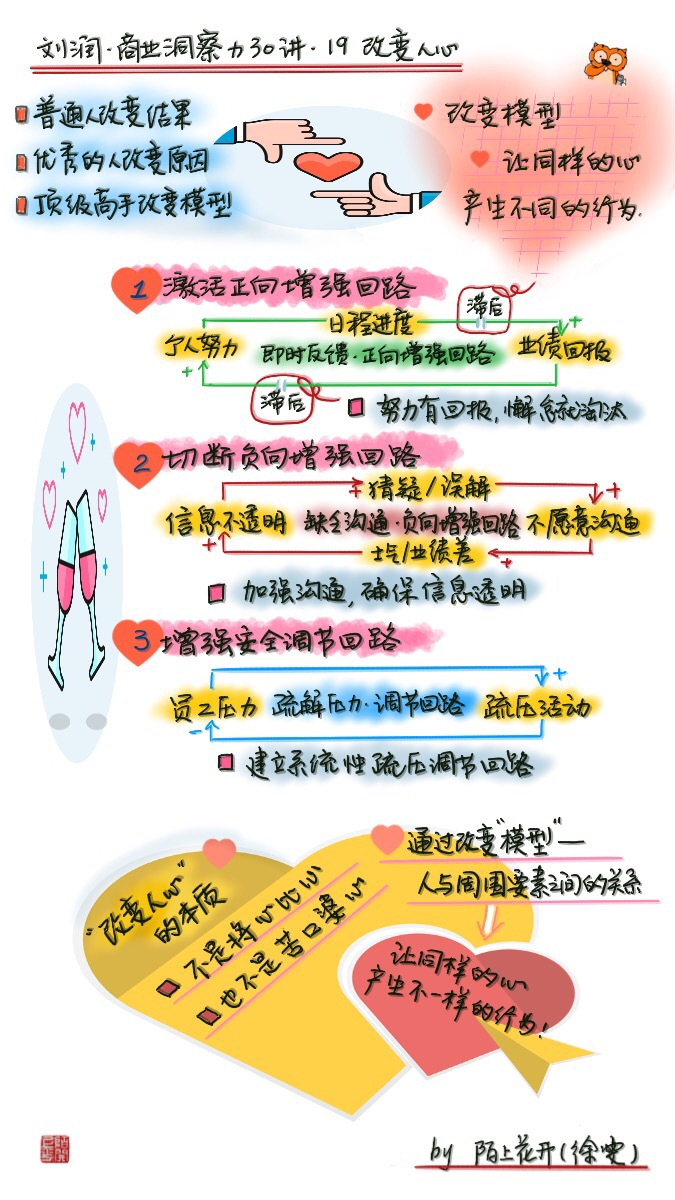 刘润·商业洞察力30讲·19 改变人心
普通人改变结果
优秀的人改变原因
顶级高手改变模型
改变模型
让同样的心
产生不同的行为.
1 激活正向增强回路
滞后
日程进度
+
个人努力
即时反馈·正向增强回路
业绩回报
+
滞后
努力有回报,懈怠就淘汰
2 切断负向增强回路
+ 猜疑/误解
+
信息不透明
缺全沟通·负向增强回路
不愿意沟通
+
士气/业绩差
+
加强沟通,确保信息透明
3 增强安全调节回路
+
员工压力
疏解压力·调节回路
疏压活动
-
建立系统性疏压调节回路
"改变人心"
的本质
不是将心比心
也不是苦口婆心
通过改变"模型"—
人与周围要素之间的关系
让同样的心
产生不一样的行为!
by 陌上花开(徐雯)